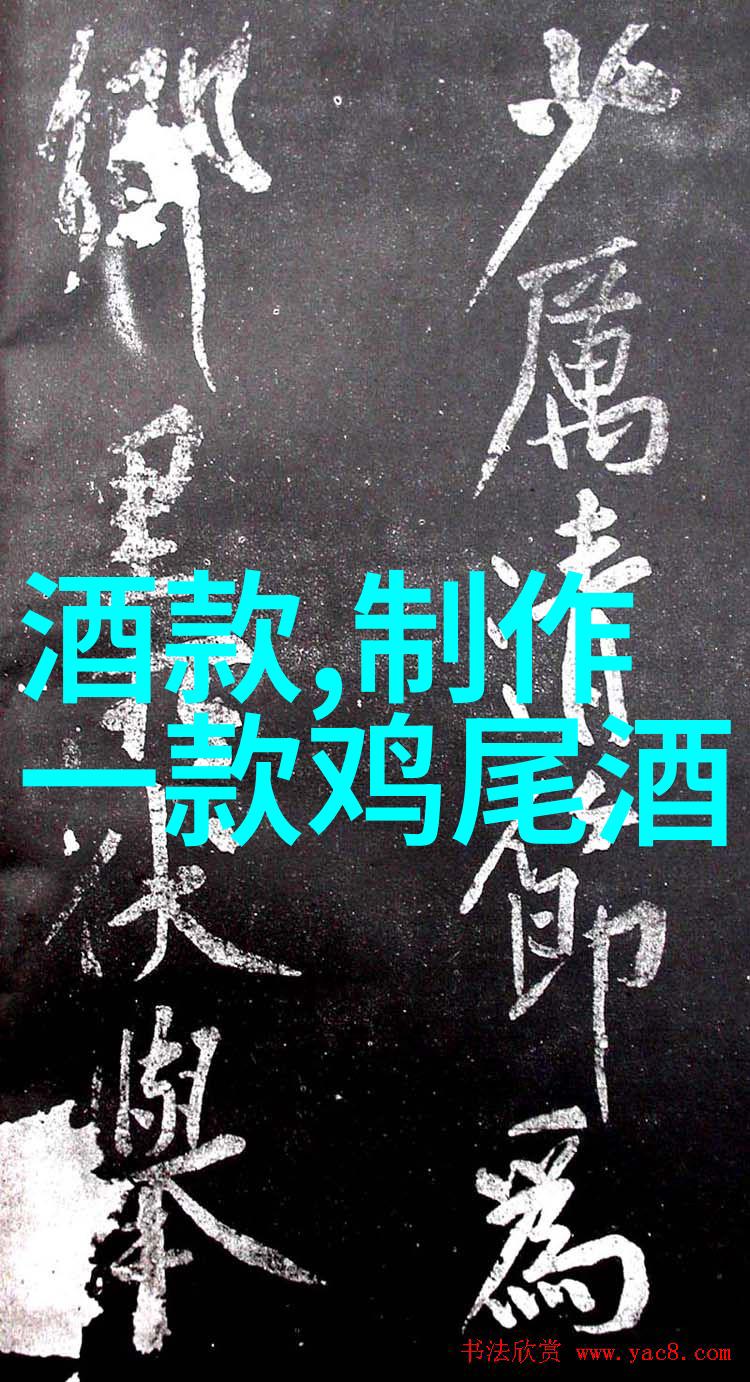 少厲清節為
鄉里伏舉
酒款,制作
一款鸡尾酒
书法欣赏 www.yac8.com